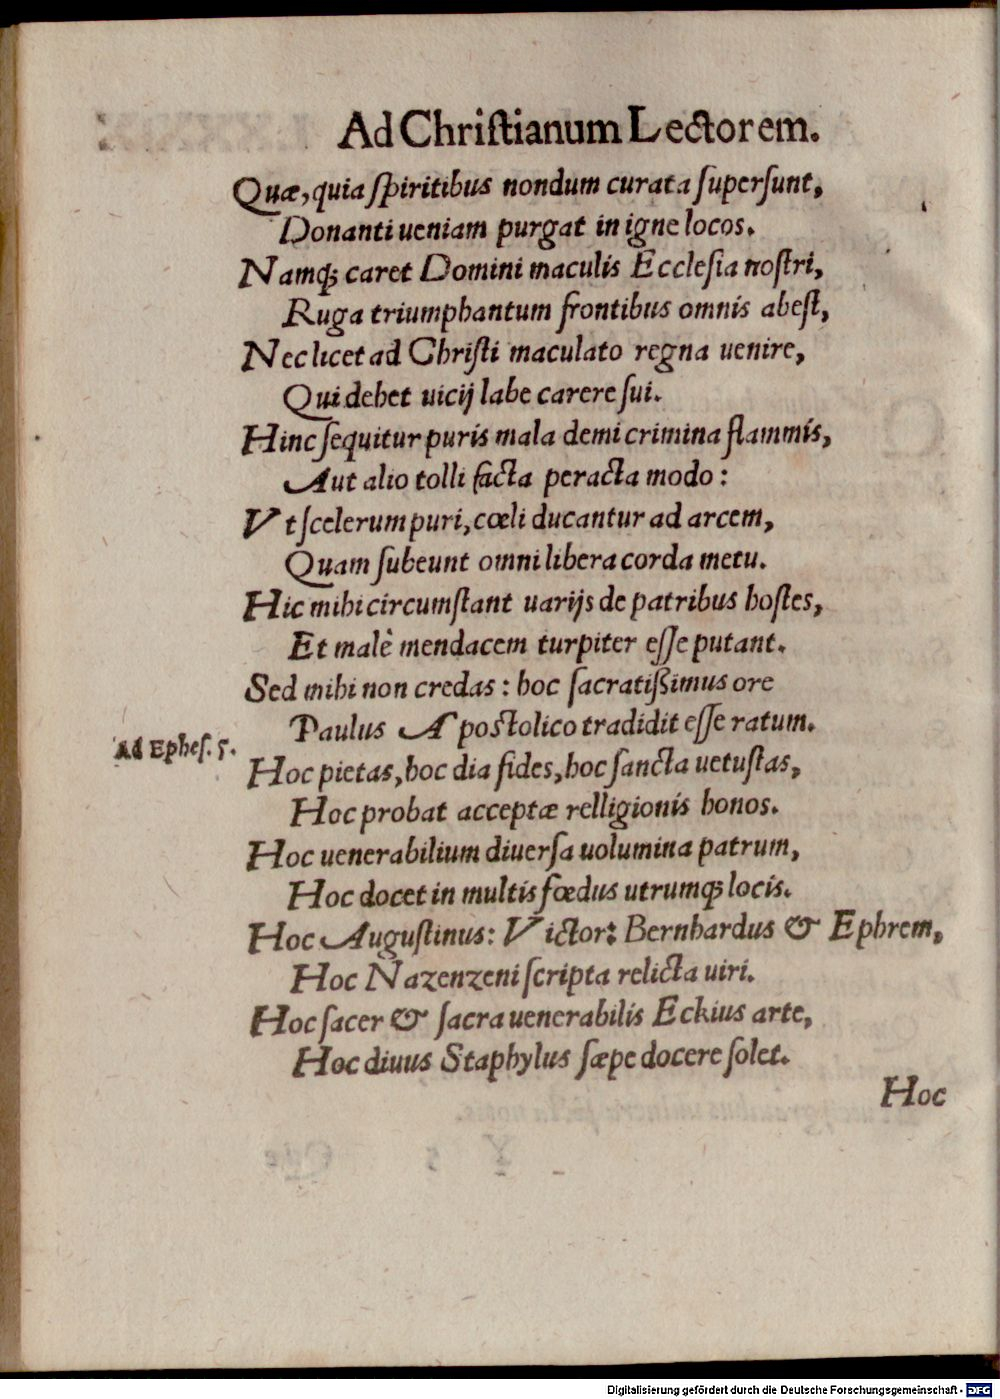 Ad Christianum Lectorem.
Quæ, quia spiritibus nondum curata supersunt,
Donanti ueniam purgat in igne locos.
Namq; caret Domini maculis Ecclesia nostri,
Ruga triumphantum frontibus omnis abest,
Nec licet ad Christi maculato regna uenire,
Qui debet uicij labe carere sui.
Hinc sequitur puris mala demi crimina flammis,
Aut alio tolli facta peracta modo:
Vt scelerum puri, cœli ducantur ad arcem,
Quam subeunt omni libera corda metu.
Hic mihi circumstant uarijs de patribus hostes,
Et malè mendacem turpiter esse putant.
Sed mihi non credas: hoc sacratißimus ore
Paulus Apostolico tradidit esse ratum.
Ad Ephes. 5.
Hoc pietas, hoc dia fides, hoc sancta uetustas,
Hoc probat acceptæ relligionis honos.
Hoc uenerabilium diuersa uolumina patrum,
Hoc docet in multis fœdus utrumq; locis.
Hoc Augustinus: Victor: Bernhardus & Ephrem,
Hoc Nazenzeni scripta relicta uiri.
Hoc sacer & sacra uenerabilis Eckius arte,
Hoc diuus Staphylus sæpe docere solet.
Hoc
Digitalisierung gefördert durch die Deutsche Forschungsgemeinschaft - DFG